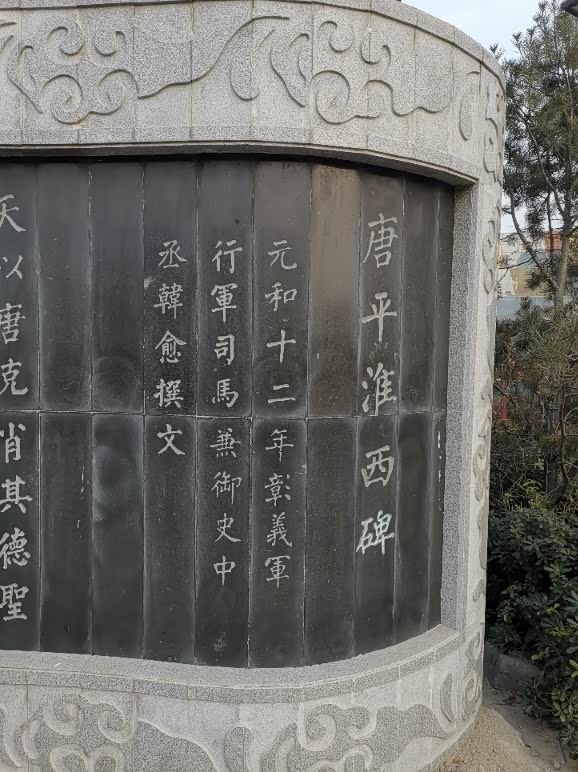 唐平淮西碑
元和十二年彰義軍
行軍司馬兼御史中
丞韓愈撰文
天以唐克肖其德聖